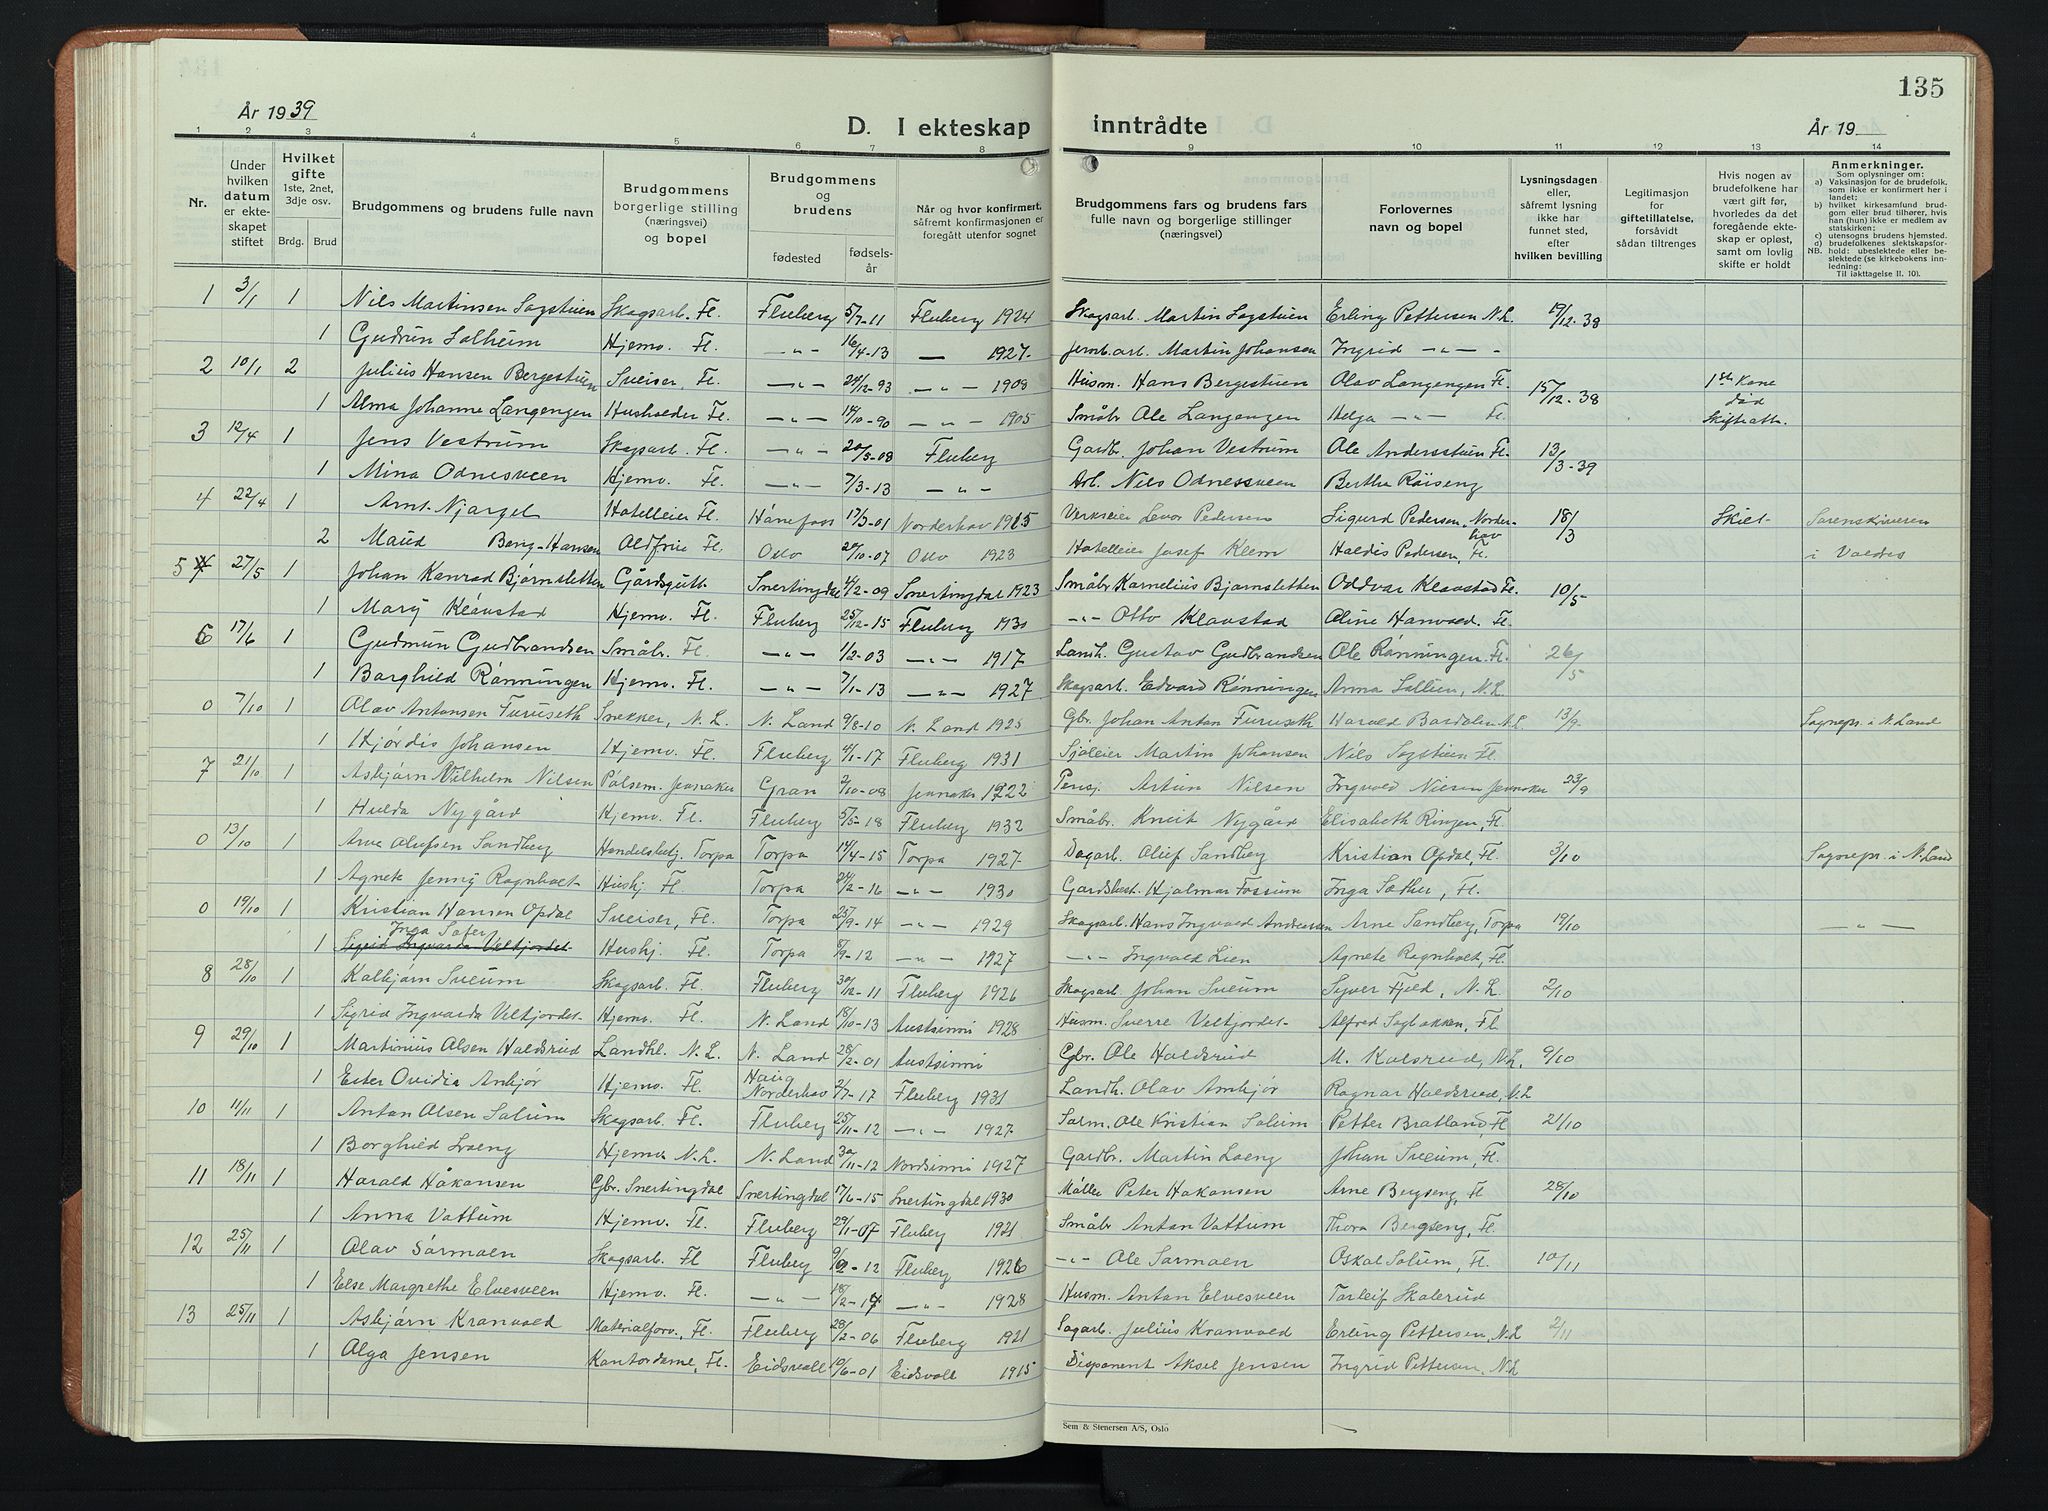 135
År 1939
D. I ekteskap inntrådte
År 19
1 2 3 4 5 6 7 8 9 10 11 12 13 14
Nr.
Under hvilken datum er ekteskapet stiftet
Hvilket gifte 1ste, 2net, 3dje osv.
Brdg. Brud
Brudgommens og brudens fulle navn
Brudgommens borgerlige stilling (næringsvei) og bopel
Brudgommens og brudens
fødested
fødselsår
Når og hvor konfirmert. såfremt konfirmasjonen er foregått utenfor sognet
Brudgommens fars og brudens fars fulle navn og borgerlige stillinger (næringsvei)
Forlovernes navn og bopel
Lysningsdagen eller, såfremt lysning ikke har funnet sted, efter hvilken bevilling
Legitimasjon for giftetillatelse, forsåvidt sådan tiltrenges
Hvis nogen av brudefolkene har vært gift før, hvorledes da det foregående ekteskap er opløst, samt om lovlig skifte er holdt
Anmerkninger.
Som oplysninger om:
a) Vaksinasjon for de brudefolk, som ikke er konfirmert her i landet;
b) hvilket kirkesamfund brudgom eller brud tilhører, hvis han (hun) ikke er medlem av statskirken;
c) utensogns brudens hjemsted.
d) brudefolkenes slektskapsforhold: ubeslektede eller beslektede (se kirkebokens innledning:
NB.
Til iakttagelse II. 10).
1 3/1 1 Nils Martinsen Sogstuen Skogsarb. Fl. Fluberg 5/7-11 Fluberg 1924 Skogsarb. Martin Sogstuen Erling Pettersen N.L. 19/12-38
1 Gudrun Solheim Hjemv. Fl. -"- 16/4-13 — 1927- Jernb.arb. Martin Johansen Ingrid -"-
2 10/1 2 Julius Hansen Bergestuen Sveiser, Fl. -"- 24/12-93 -"- 1908 Husm. Hans Bergestuen Olav Langengen Fl. 15/12-38 1ste Kone død
1 Alma Johanne Langengen Husholder Fl. -"- 14/10-90 -"- 1905 Småbr. Ole Langengen Helga -"- Fl. Skifteatt.
3 12/4 1 Jens Vestrum Skogsarb. Fl. -"- 20/5-08 Fluberg Gardbr. Johan Vestrum Ole Andersstuen Fl. 13/3-39
1 Mina Odnesveen Hjemv. Fl. -"- 7/3-13 -"- Arb. Nils Odnessveen Berthe Röiseng
4 22/4 1 Arnt Njargel Hotelleier Fl. Hønefoss 17/3-01 Norderhov 1915 Verkseier Levor Pedersen Sigurd Pedersen, Norderhov 18/3 Skilt Sorenskriveren
2 Maud Berg-Hansen Oldfrue Fl. Oslo 20/10-07 Oslo 1923 Hotelleier Josef Klem Haldis Pedersen, Fl. i Valdres
5 27/5 1 Johan Konrad Bjørnsletten Gårdsgutt Snertingdal 4/2-09 Snertingdal 1923 Småbr. Kornelius Bjørnsletten Oddvar Klovstad Fl. 10/5
1 Mary Klovstad Hjemv. Fl. Fluberg 25/12-15 Fluberg 1930 -"- Otto Klovstad Aline Hanvold. Fl.
6 17/6 1 Gudmun Gudbrandsen Småbr. Fl. -"- 1/2-03 -"- 1917 Landh. Gustav Gudbrandsen Ole Rönningen Fl. 26/5
1 Borghild Rønningen Hjemv. Fl. -"- 7/1-13 -"- 1927 Skogsarb. Edvard Rönningen Anna Sollien, N.L.
0 7/10 1 Olav Antonsen Furuseth Snekker, N.L. N. Land 9/8-10 N. Land 1925 Gbr. Johan Anton Furuseth Harald Bardalen N.L. 13/9 Sognepr. i N. Land
1 Hjördis Johansen Hjemv. Fl. Fluberg 4/1-17 Fluberg 1931 Sjöleier Martin Johansen Nils Sogstuen Fl.
7 21/10 1 Asbjørn Vilhelm Nilsen Pølsem. Jevnaker Gran 2/10-08 Jevnaker 1922 Pensj. Artun Nilsen Ingvald Nilsen Jevnaker 23/9
1 Hulda Nygård Hjemv. Fl. Fluberg 5/5-18 Fluberg 1932 Småbr. Knut Nygård Elisabeth Ringen, Fl.
0 13/10 1 Arne Olufsen Sandberg Handelsbetj. Torpa Torpa 14/4-15 Torpa 1927 Dagarb. Oluf Sandberg Kristian Opdal, Fl. 3/10 Sognepr. i N. Land
1 Agnete Jenny Rognholt Hushj. Fl. Torpa 24/2-16 -"- 1930 Gardsbest. Hjalmar Fossum Inga Sæther, Fl.
0 19/10 1 Kristian Hansen Opdal Sveiser, Fl. Torpa 25/9-14 -"- 1929 Skogsarb. Hans Ingvald Andreassen Arne Sandberg, Torpa 19/10 -"-
Inga Sæter
1 Sigrid Ingvarda Veltjordet Hushj. Fl. Torpa 8/9-12 -"- 1927 -"- Ingvald Lien Agnete Rognholt, Fl.
8 28/10 1 Kolbjørn Sveum Skogsarb. Fl. Fluberg 30/12-11 Fluberg 1926 Skogsarb. Johan Sveum Syver Fjeld, N.L. 2/10
1 Sigrid Ingvarda Veltjordet Hjemv. Fl. N. Land 18/10-13 Austsinni 1928 Husm. Sverre Veltjordet Alfred Sagbakken, Fl.
9 29/10 1 Martinius Olsen Holdsrud Landhl. N.L. N. Land 28/2-01 Austsinni Gbr. Ole Holdsrud M. Kolsrud, N.L. 9/10
1 Ester Ovidia Amkjør Hjemv. Fl. Haug Norderhov 2/7-17 Fluberg 1931 Landh. Olav Amkjør Ragnar Holdsrud, N.L
10 11/11 1 Anton Olsen Solum Skogsarb. Fl. Fluberg 25/11-12 -"- 1927 Sarm. Ole Kristian Solum Petter Bratland, Fl 21/10
1 Borghild Loeng Hjemv. N.L. N. Land 30/11-12 Nordsinni 1927 Gardbr. Martin Loeng Johan Sveum, Fl.
11 18/11 1 Harald Håkonsen Gbr. Snertingdal Snertingdal 17/6-15 Snertingdal 1930 Møller Peter Hakonsen Arne Bergseng, Fl 28/10
1 Anna Vattum Hjemv. Fl. Fluberg 29/1-07 Fluberg 1921 Småbr Anton Vattum Thora Bergseng, Fl.
12 25/11 1 Olav Sørmoen Skogsarb. Fl Fluberg 9/2-12 Fluberg 1926 -"- Ole Sørmoen Oskal Solum, Fl. 10/11
1 Else Margrethe Elvesveen Hjemv. Fl. -"- 18/2-14 -"- 1928 Husm. Anton Elvesveen Torleif Skolerud
13 25/11 1 Asbjørn Kranvold Materialforv., Fl. Fluberg 28/2-06 Fluberg 1921 Sagarb. Julius Kranvold Erling Pettersen, N.L 2/11
1 Olga Jensen Kontordame, Fl. Eidsvoll 10/6-01 Eidsvoll 1915 Disponent Aksel Jensen Ingrid Pettersen, N.L
Sem & Stenersen A/S, Oslo